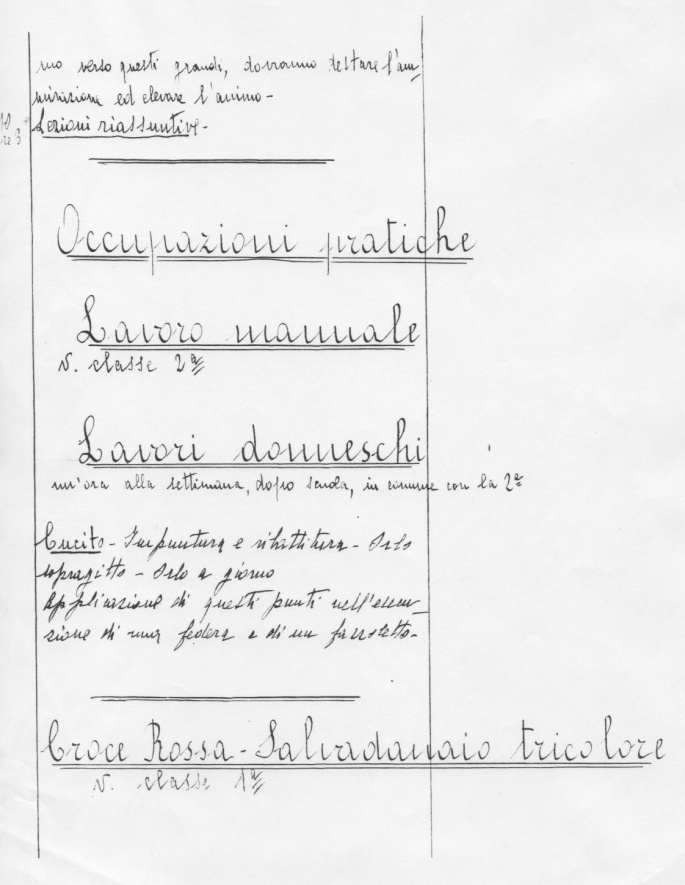 mo verso questi grandi, dovranno destare l'am-
mirazione ed elevare l'animo-
Lezioni riassuntive-
Occupazioni pratiche
Lavoro manuale
V. classe 2ª
Lavori donneschi
un'ora alla settimana, dopo scuola, in comune con la 2ª
Cucito - Impuntura e ribattitura - Orlo
sopragitto - Orlo a giorno
Applicazione di questi punti nell'esecu-
zione di una federa e di un fazzoletto-
Croce Rossa - Salvadanaio tricolore
V. classe 1ª